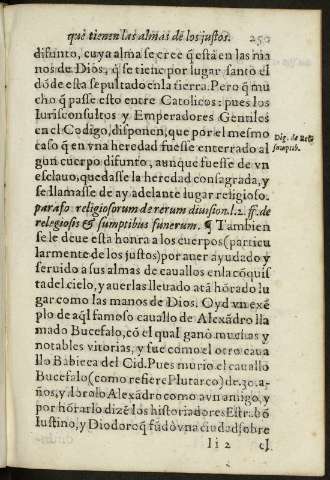 què tienen las almas dẽ los justos. 250
difunto, cuya alma se cree q̃ está en las ma
nos de Dios, q̃ se tiene por lugar santo el
dõde esta sepultado en la tierra. Pero q̃ mu
cho q̃ passe esto entre Catolicos: pues los
Iurisconsultos y Emperadores Gentiles
en el Codigo, disponen, que por el mesmo
caso q̃ en vna heredad fuesse enterrado al
gun cuerpo difunto, aunque fuesse de vn
esclauo, quedasse la heredad consagrada, y
se llamasse de ay adelante lugar religioso.
parafo religiosorum de rerum diuision. l. 2. ff. de
relegiosis & sumptibus funerum. ¶ Tambien
se le deue esta honra a los cuerpos (particu
larmente de los justos) por auer ayudado y
seruido a sus almas de cauallos en la cõquis
ta del cielo, y auerlas lleuado atã hõrado lu
gar como las manos de Dios. Oyd vn exẽ
plo de aq̃l famoso cauallo de Alexãdro lla
mado Bucefalo, cõ el qual ganò muchas y
notables vitorias, y fue como el otro caua
llo Babieca del Cid. Pues murio el cauallo
Bucefalo (como refiere Plutarco) de. 30. a-
ños, y llorolo Alexãdro como a vn amigo, y
por hõrarlo dizẽ los historiadores Estrabõ
Iustino, y Diodoro q̃ fũdò vna ciudad sobre
Ii 2 el
Dig. de
sumptib.